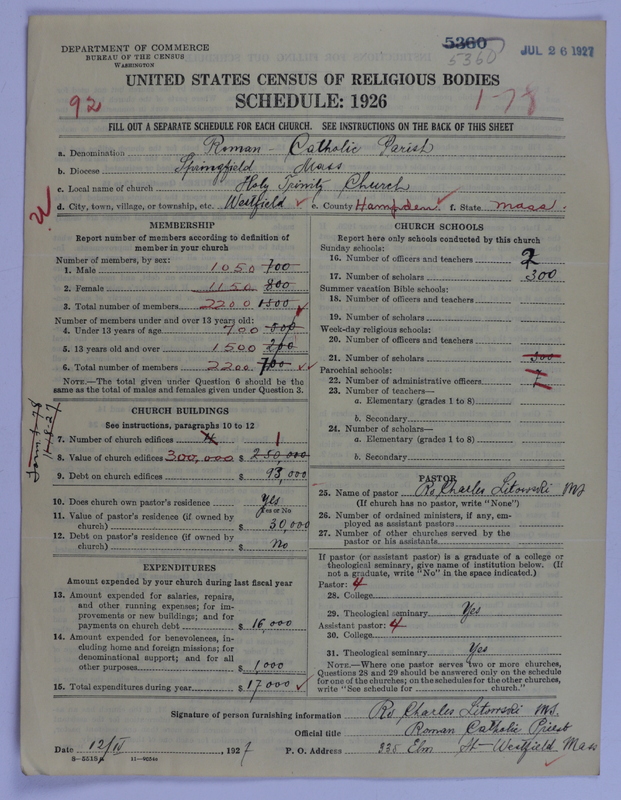 DEPARTMENT OF COMMERCE
BUREAU OF THE CENSUS
WASHINGTON
5360
5360
JUL 26 1927
UNITED STATES CENSUS OF RELIGIOUS BODIES
92
SCHEDULE: 1926
1-78
FILL OUT A SEPARATE SCHEDULE FOR EACH CHURCH. SEE INSTRUCTIONS ON THE BACK OF THIS SHEET
a. Denomination Roman - Catholic Parish
b. Diocese Springfield Mass
c. Local name of church Holy Trinity Church
d. City, town, village, or township, etc. Westfield e. County Hampden f. State Mass.
MEMBERSHIP
Report number of members according to definition of
member in your church
Number of members, by sex:
1. Male 1050 700
2. Female 1150 800
3. Total number of members 2200 1500
Number of members under and over 13 years old:
4. Under 13 years of age 700
5. 13 years old and over 1500 200
6. Total number of members 2200 700
NOTE.—The total given under Question 6 should be the
same as the total of males and females given under Question 3.
CHURCH BUILDINGS
See instructions, paragraphs 10 to 12
7. Number of church edifices 4 1
8. Value of church edifices 300,000 $ 250,000
9. Debt on church edifices $ 93,000
10. Does church own pastor's residence Yes
Yes or No
11. Value of pastor's residence (if owned by
church) $ 30,000
12. Debt on pastor's residence (if owned by
church) $ No
EXPENDITURES
Amount expended by your church during last fiscal year
13. Amount expended for salaries, repairs,
and other running expenses; for im-
provements or new buildings; and for
payments on church debt $ 16,000
14. Amount expended for benevolences, in-
cluding home and foreign missions; for
denominational support; and for all
other purposes $ 1,000
15. Total expenditures during year $ 17,000
CHURCH SCHOOLS
Report here only schools conducted by this church
Sunday schools:
16. Number of officers and teachers 2
17. Number of scholars 300
Summer vacation Bible schools:
18. Number of officers and teachers
19. Number of scholars
Week-day religious schools:
20. Number of officers and teachers
21. Number of scholars 300
Parochial schools:
22. Number of administrative officers
23. Number of teachers—
a. Elementary (grades 1 to 8)
b. Secondary
24. Number of scholars—
a. Elementary (grades 1 to 8)
b. Secondary
PASTOR
25. Name of pastor Rv Charles Litowski MS
(If church has no pastor, write "None")
26. Number of ordained ministers, if any, em-
ployed as assistant pastors
27. Number of other churches served by the
pastor or his assistants
If pastor (or assistant pastor) is a graduate of a college or
theological seminary, give name of institution below. (If
not a graduate, write "No" in the space indicated.)
Pastor: 4
28. College
29. Theological seminary Yes
Assistant pastor: 4
30. College
31. Theological seminary Yes
NOTE.—Where one pastor serves two or more churches,
Questions 28 and 29 should be answered only on the schedule
for one of the churches; on the schedules for the other churches,
write "See schedule for church."
Signature of person furnishing information Rv Charles Litowski MS.
Official title Roman Catholic Priest
Date 12/IV, 1927 P. O. Address 335 Elm St - Westfield, Mass
8—5515A 11—9054a